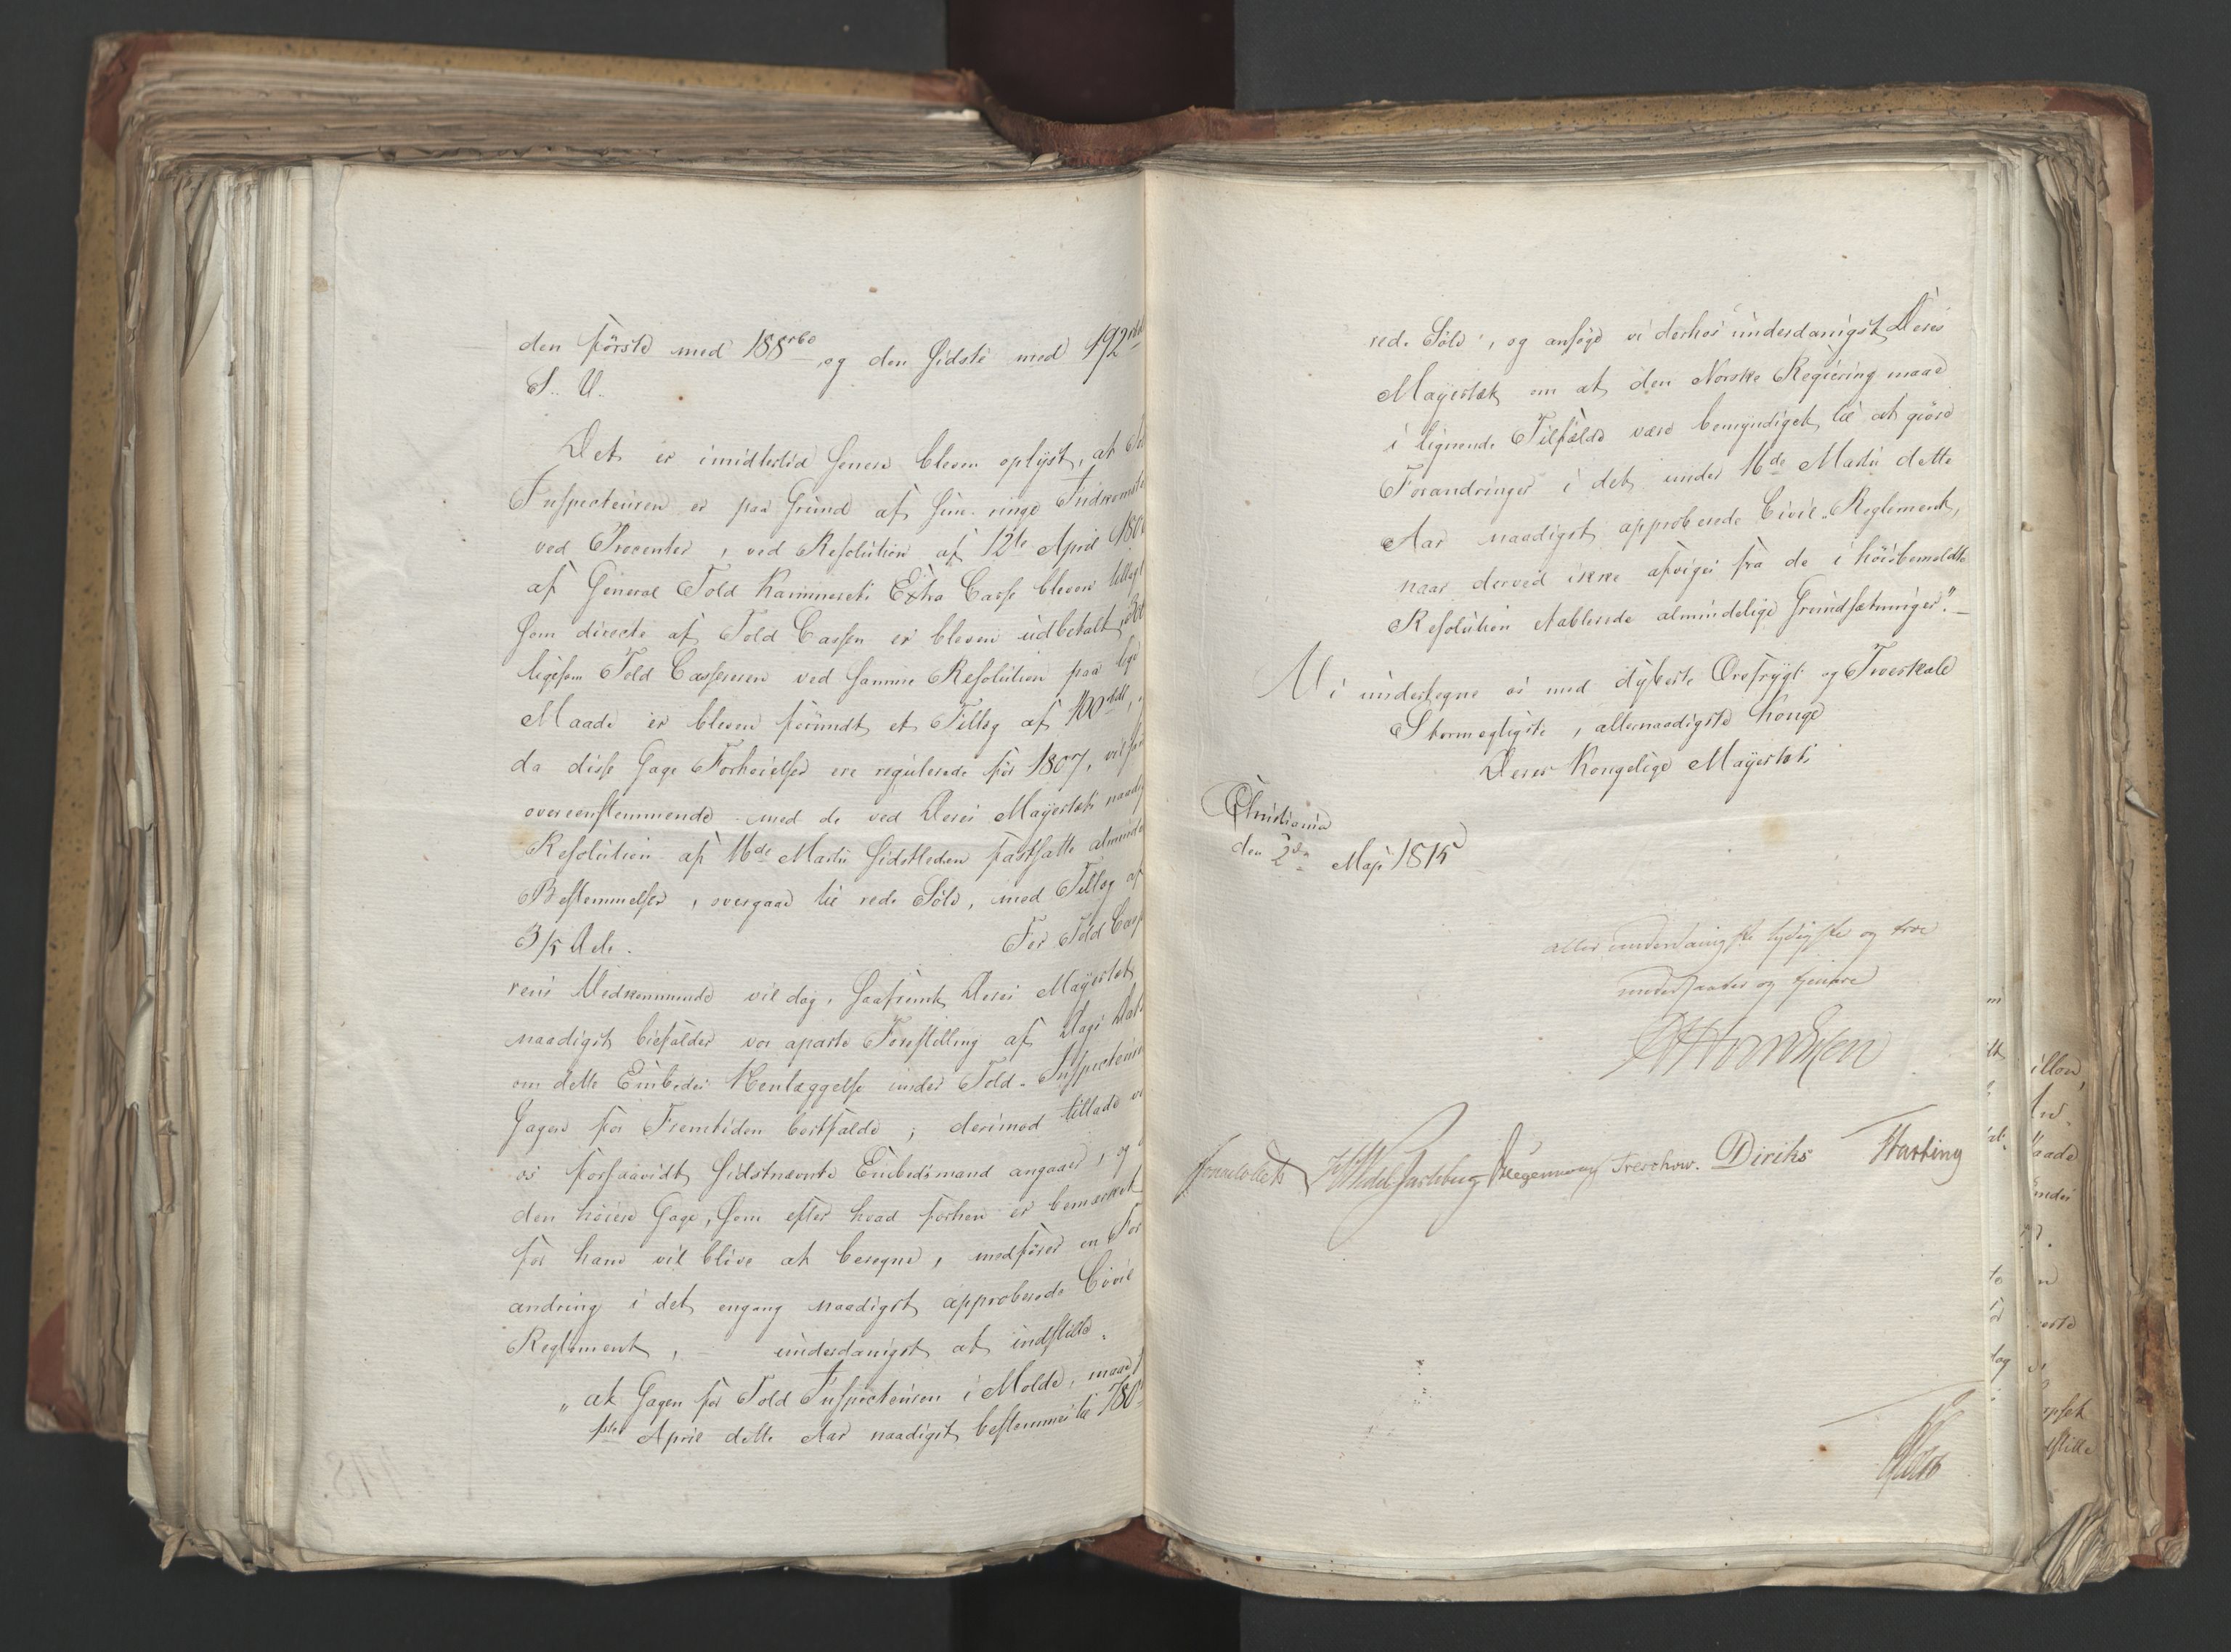 den første med 188 rbd og den sidste med 192 rbd
S. V.
Det er imidlertid senere bleven oplyst, at
Inspecteuren er paa Grund af sine ringe Indkomster
ved Procenter, ved Resolution af 12te April 180
af General Told Kammerets Extra Casse bleven tillagt
som directe af Told Cassen er bleven udbetalt,
ligesom Told Cassereren ved samme Resolution paa lige
Maade er bleven forundt et Tillæg af 100 rdlr,
da disse Gage Forhøielser ere regulerede før 1807, vil
overeenstemmende med de ved Deres Majestæts naadig
Resolution af 16de Martii sidstleden fastsatte alminde
Bestemmelser, overgaae til rede Sølv, med Tillæg af
3/5 Dele. For Told Cass
rens Vedkommende vil dog, saafremt Deres Majestæt
naadigst bifalder vor aparte Forestilling af Dags Dato
om dette Embedes Henlæggelse under Told-Inspecteuren
Gagen for Fremtiden bortfalde; derimod tillade vi
os forsaavidt sidstnævnte Embedsmand angaaer, og
den høiere Gage, som efter hvad forhen er bemærket
for ham vil blive at beregne, medfører en For
andring i det engang naadigst approberede Civil
Reglement, - underdanigst at indstille.
„at Gagen for Told Inspecteuren i Molde, maae f
1ste April dette Aar naadigst bestemmes til 780
rede Sølv", og ansøge vi derhos underdanigst Deres
Majestæt om at den Norske Regiering maae
i lignende Tilfælde være bemyndiget til at giøre
Forandringer i det under 16de Martii dette
Aar naadigst approberede Civil-Reglement,
naar derved ikke afviges fra de i høistbemeldte
Resolution etablerede almindelige Grundsætninger."-
Vi undertegne os med dybeste Ærefrygt og Troeskab
Stormægtigste, allernaadigste Konge
Deres Kongelige Majestæts
Christiania
den 2den Maji 1815
aller underdanigste lydigste og troe
undersaatter og tjenere
Sommerfeldt Wedel Jarlsberg Hegermann Treschow. Diriks Hasting